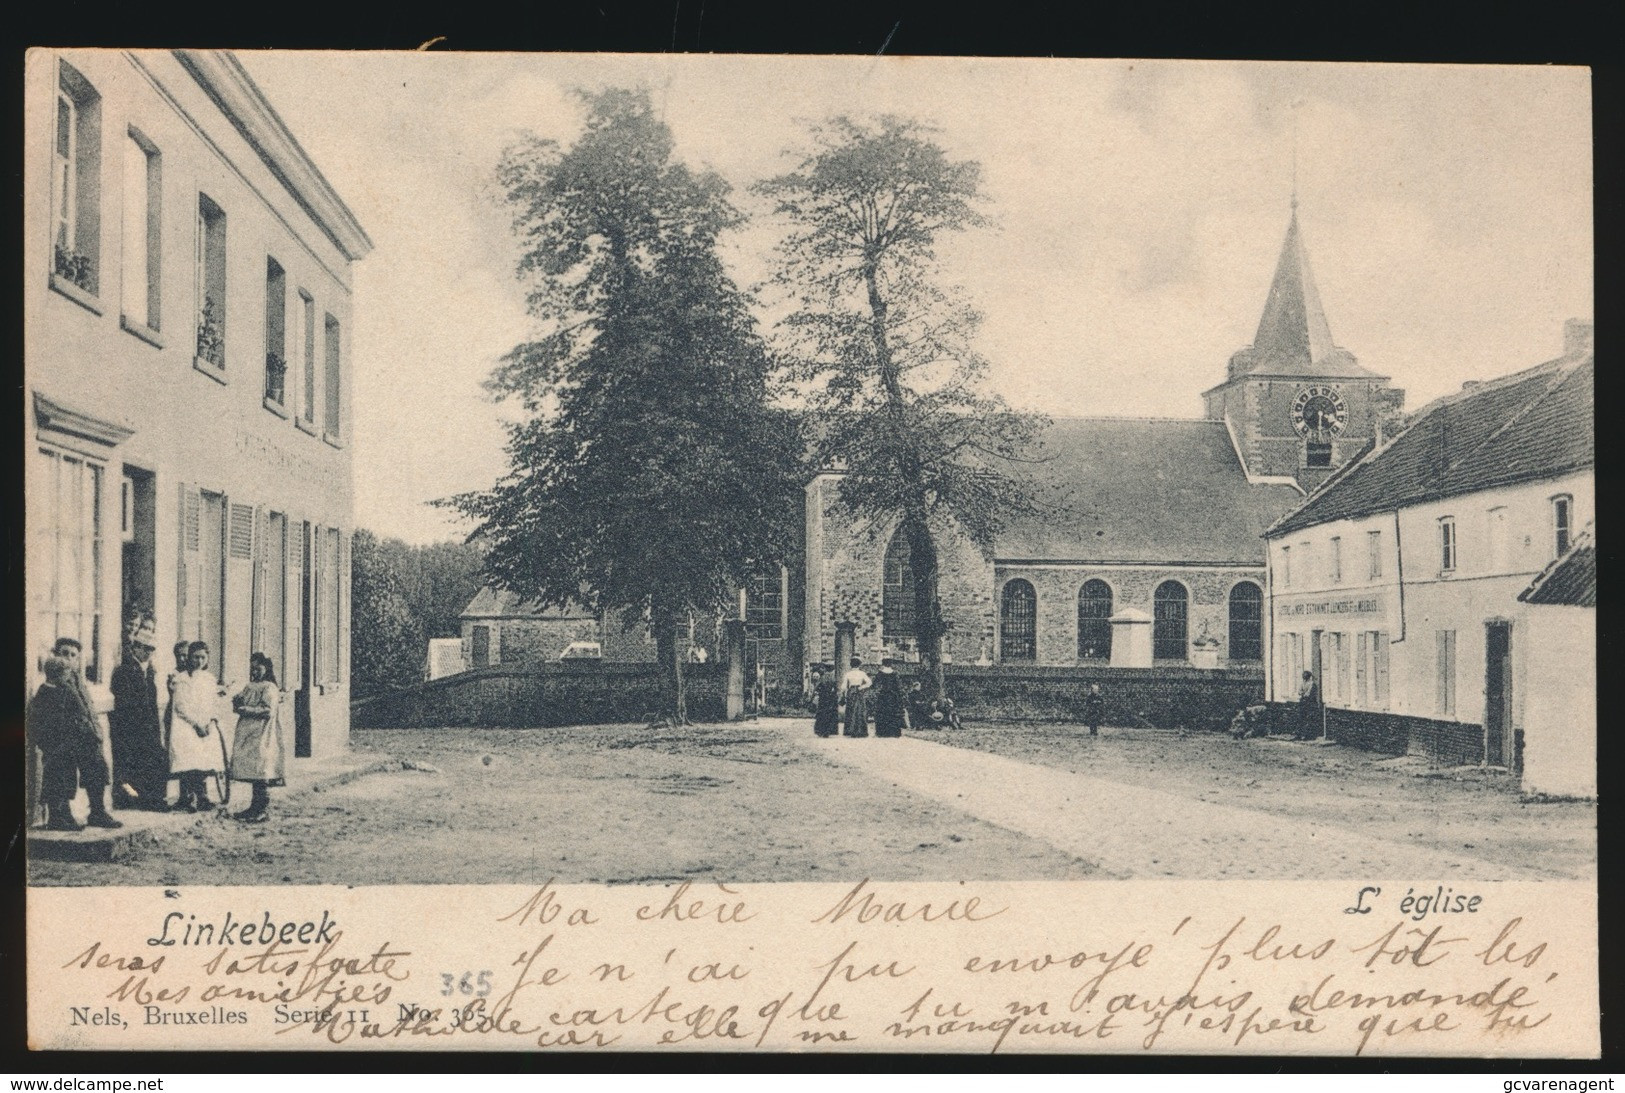 ESTAMINET
Linkebeek
L' église
Ma chère Marie
Je n'ai pu envoyé plus tôt les
cartes que tu m'avais demandé
car elle me manquait j'espère que tu
seras satisfaite
Mes amitiés
Mathilde
365
Nels, Bruxelles Serie 11 No. 365
www.delcampe.net
gcvarenagent